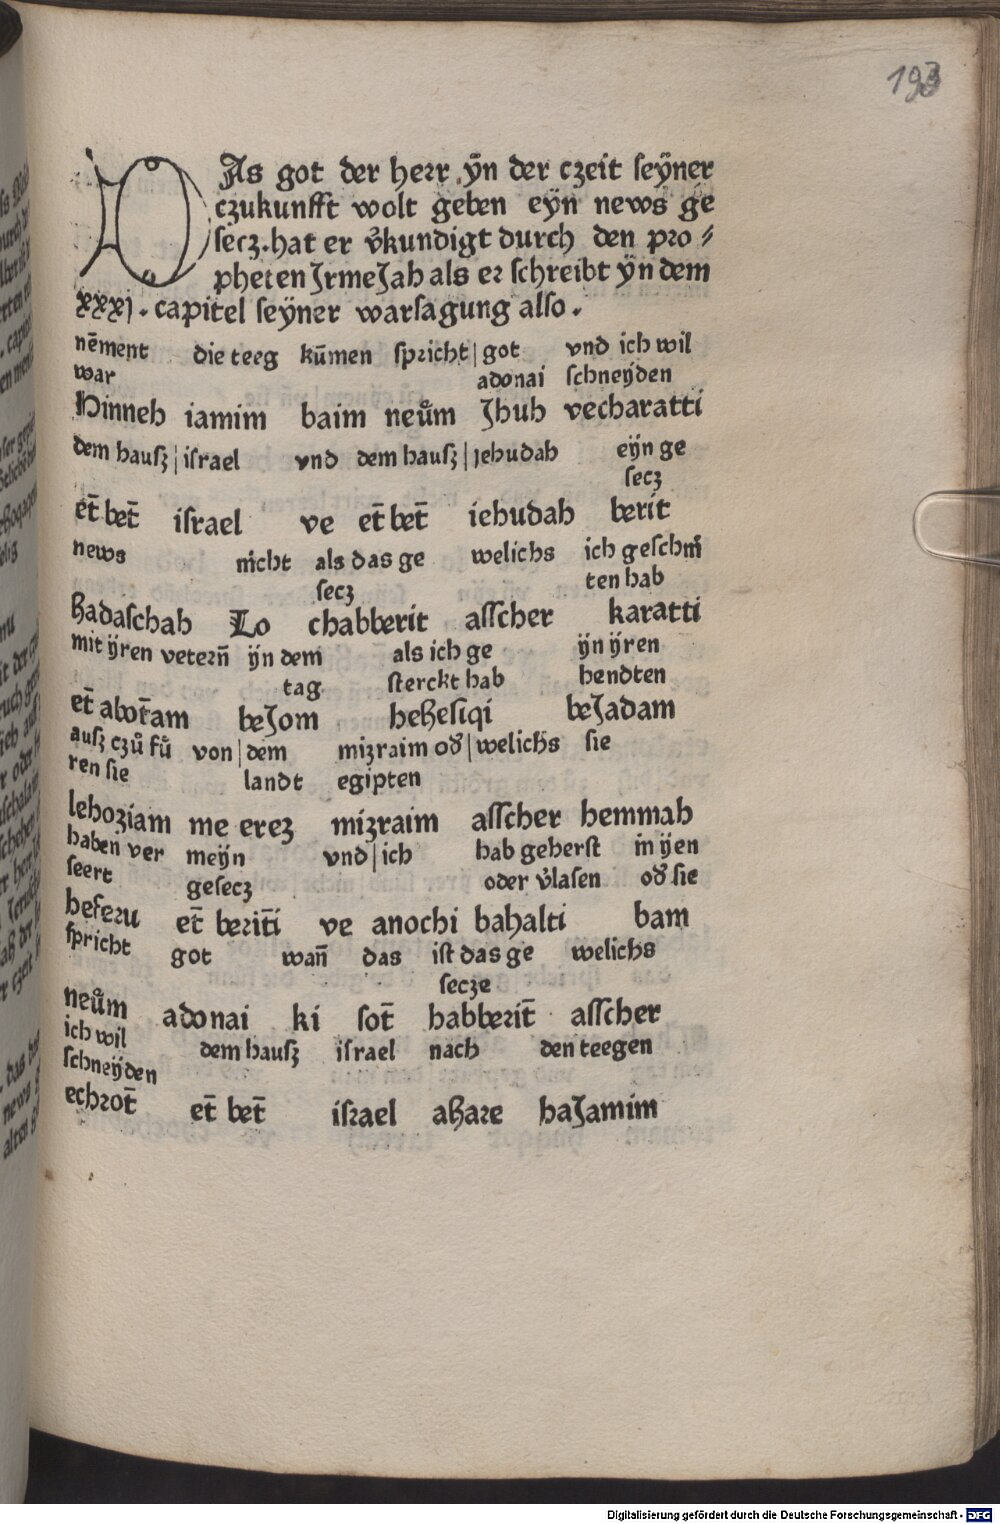 193
DAs got der herr ÿn der czeit seÿner
czukunfft wolt geben eÿn news ge
secz.hat er v̉kundigt durch den pro⸗
pheten JrmeJah als er schreibt ÿn dem
xxxj. capitel seÿner warsagung also.
nēment die teeg kūmen spricht|got vnd ich wil
war adonai schneÿden
Hinneh iamim baim neům Jhuh vecharatti
dem hausz|israel vnd dem hausz|jehudah eÿn ge
secz
et̄ bet̄ israel ve et̄ bet̄ iehudah berit
news nicht als das ge welichs ich geschni
secz ten hab
hadaschah Lo chabberit asscher karatti
mit ÿren vetern̄ ÿn dem als ich ge ÿn ÿren
tag sterckt hab hendten
et̄ abot̄am beJom heHesiqi beJadam
ausz czů fů von|dem mizraim od̉|welichs sie
ren sie landt egipten
lehoziam me erez mizraim asscher hemmah
haben ver meÿn vnd|ich hab geherst in ÿen
seert gesecz oder v̉lasen od̉ sie
heferu et̄ berit̄i ve anochi bahalti bam
spricht got wan̄ das ist das ge welichs
secze
neům adonai ki sot̄ habberit̄ asscher
ich wil dem hausz israel nach den teegen
schneÿden
echrot̄ et̄ bet̄ israel aHare haJamim
Digitalisierung gefördert durch die Deutsche Forschungsgemeinschaft - DFG